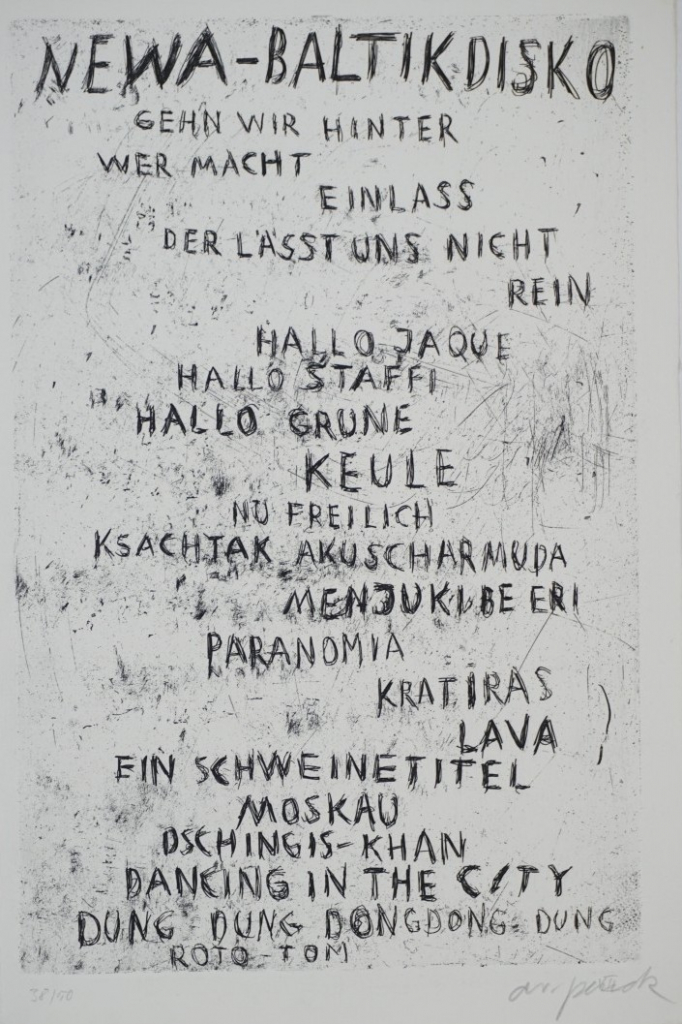 NEWA-BALTIKDISKO
GEHN WIR HINTER
WER MACHT
EINLASS
DER LÄSST UNS NICHT
REIN
HALLO JAQUE
HALLO STAFFI
HALLO GRUNE
KEULE
NU FREILICH
KSACHTAK AKUSCHARMUDA
MENJUKIBE ERI
PARANOMIA
KRATIRAS
LAVA
EIN SCHWEINETITEL
MOSKAU
DSCHINGIS-KHAN
DANCING IN THE CITY
DUNG DUNG DONGDONG DUNG
ROTO-TOM